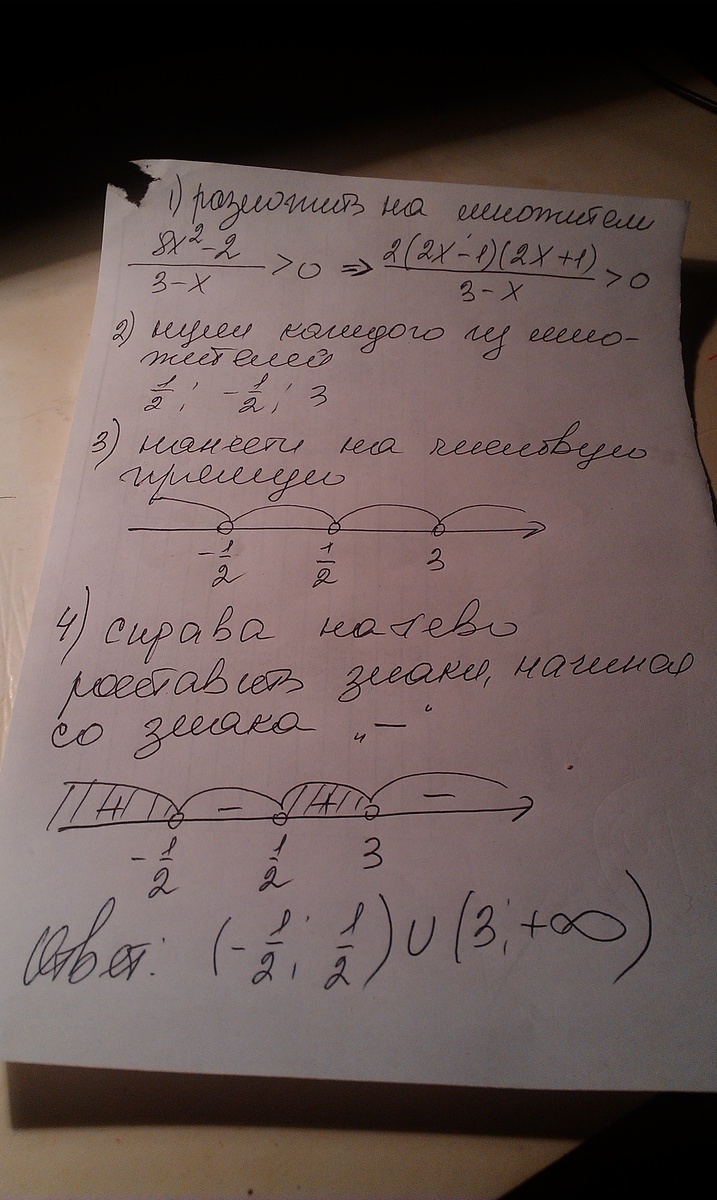 1) разложить на множители
8x²-2/3-x >0 ⇒ 2(2x-1)(2x+1)/3-x >0
2) нули каждого из мно-
жителей
1/2; -1/2; 3
3) нанести на числовую
прямую
-1/2 1/2 3
4) справа налево
расставить знаки, начиная
со знака „—“
+ - + -
-1/2 1/2 3
Ответ: (-1/2; 1/2)∪(3;+∞)